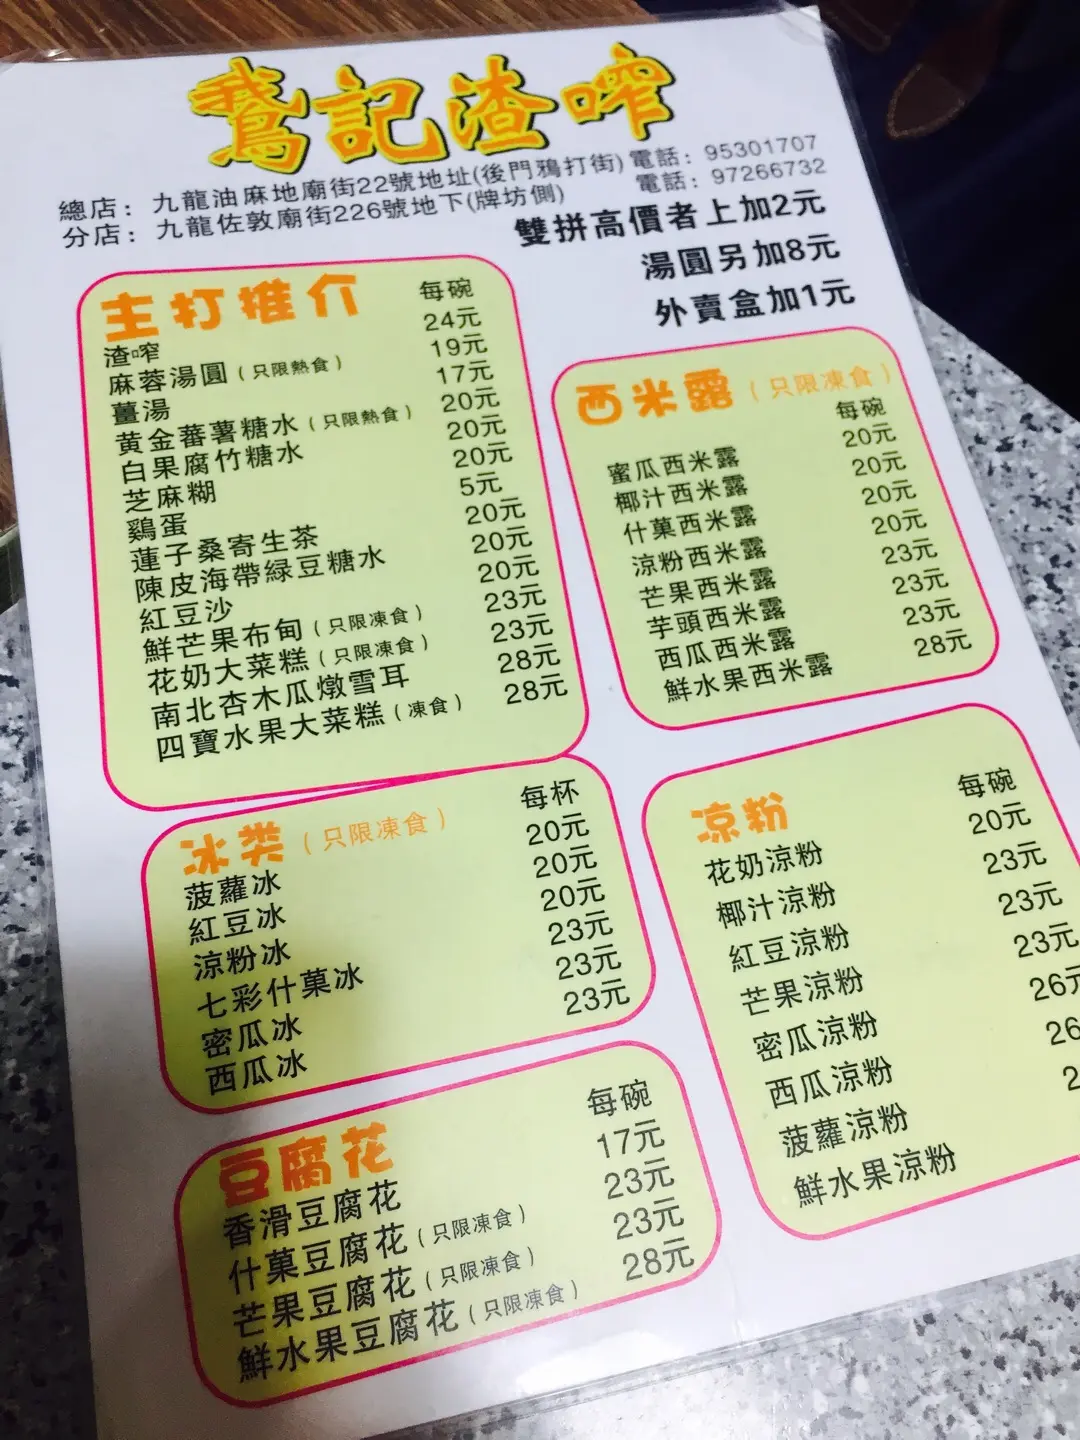 鵝記渣咋
總店：九龍油麻地廟街22號地址(後門鴉打街) 電話：95301707
分店：九龍佐敦廟街226號地下(牌坊側) 電話：97266732
雙拼高價者上加2元
湯圓另加8元
外賣盒加1元
主打推介 每碗
渣咋 24元
麻蓉湯圓(只限熱食) 19元
薑湯 17元
黄金蕃薯糖水(只限熱食) 20元
白果腐竹糖水 20元
芝麻糊 20元
鷄蛋 5元
蓮子桑寄生茶 20元
陳皮海帶緑豆糖水 20元
紅豆沙 20元
鮮芒果布甸(只限凍食) 23元
花奶大菜糕(只限凍食) 23元
南北杏木瓜燉雪耳 28元
四寶水果大菜糕(凍食) 28元
西米露(只限凍食)
每碗
蜜瓜西米露 20元
椰汁西米露 20元
什菓西米露 20元
涼粉西米露 20元
芒果西米露 23元
芋頭西米露 23元
西瓜西米露 23元
鮮水果西米露 28元
冰类(只限凍食) 每杯
菠蘿冰 20元
紅豆冰 20元
涼粉冰 20元
七彩什菓冰 23元
密瓜冰 23元
西瓜冰 23元
凉粉 每碗
花奶涼粉 20元
椰汁涼粉 23元
紅豆涼粉 23元
芒果涼粉 23元
密瓜涼粉 26元
西瓜涼粉 26
菠蘿涼粉 2
鮮水果涼粉
豆腐花 每碗
香滑豆腐花 17元
什菓豆腐花(只限凍食) 23元
芒果豆腐花(只限凍食) 23元
鮮水果豆腐花(只限凍食) 28元